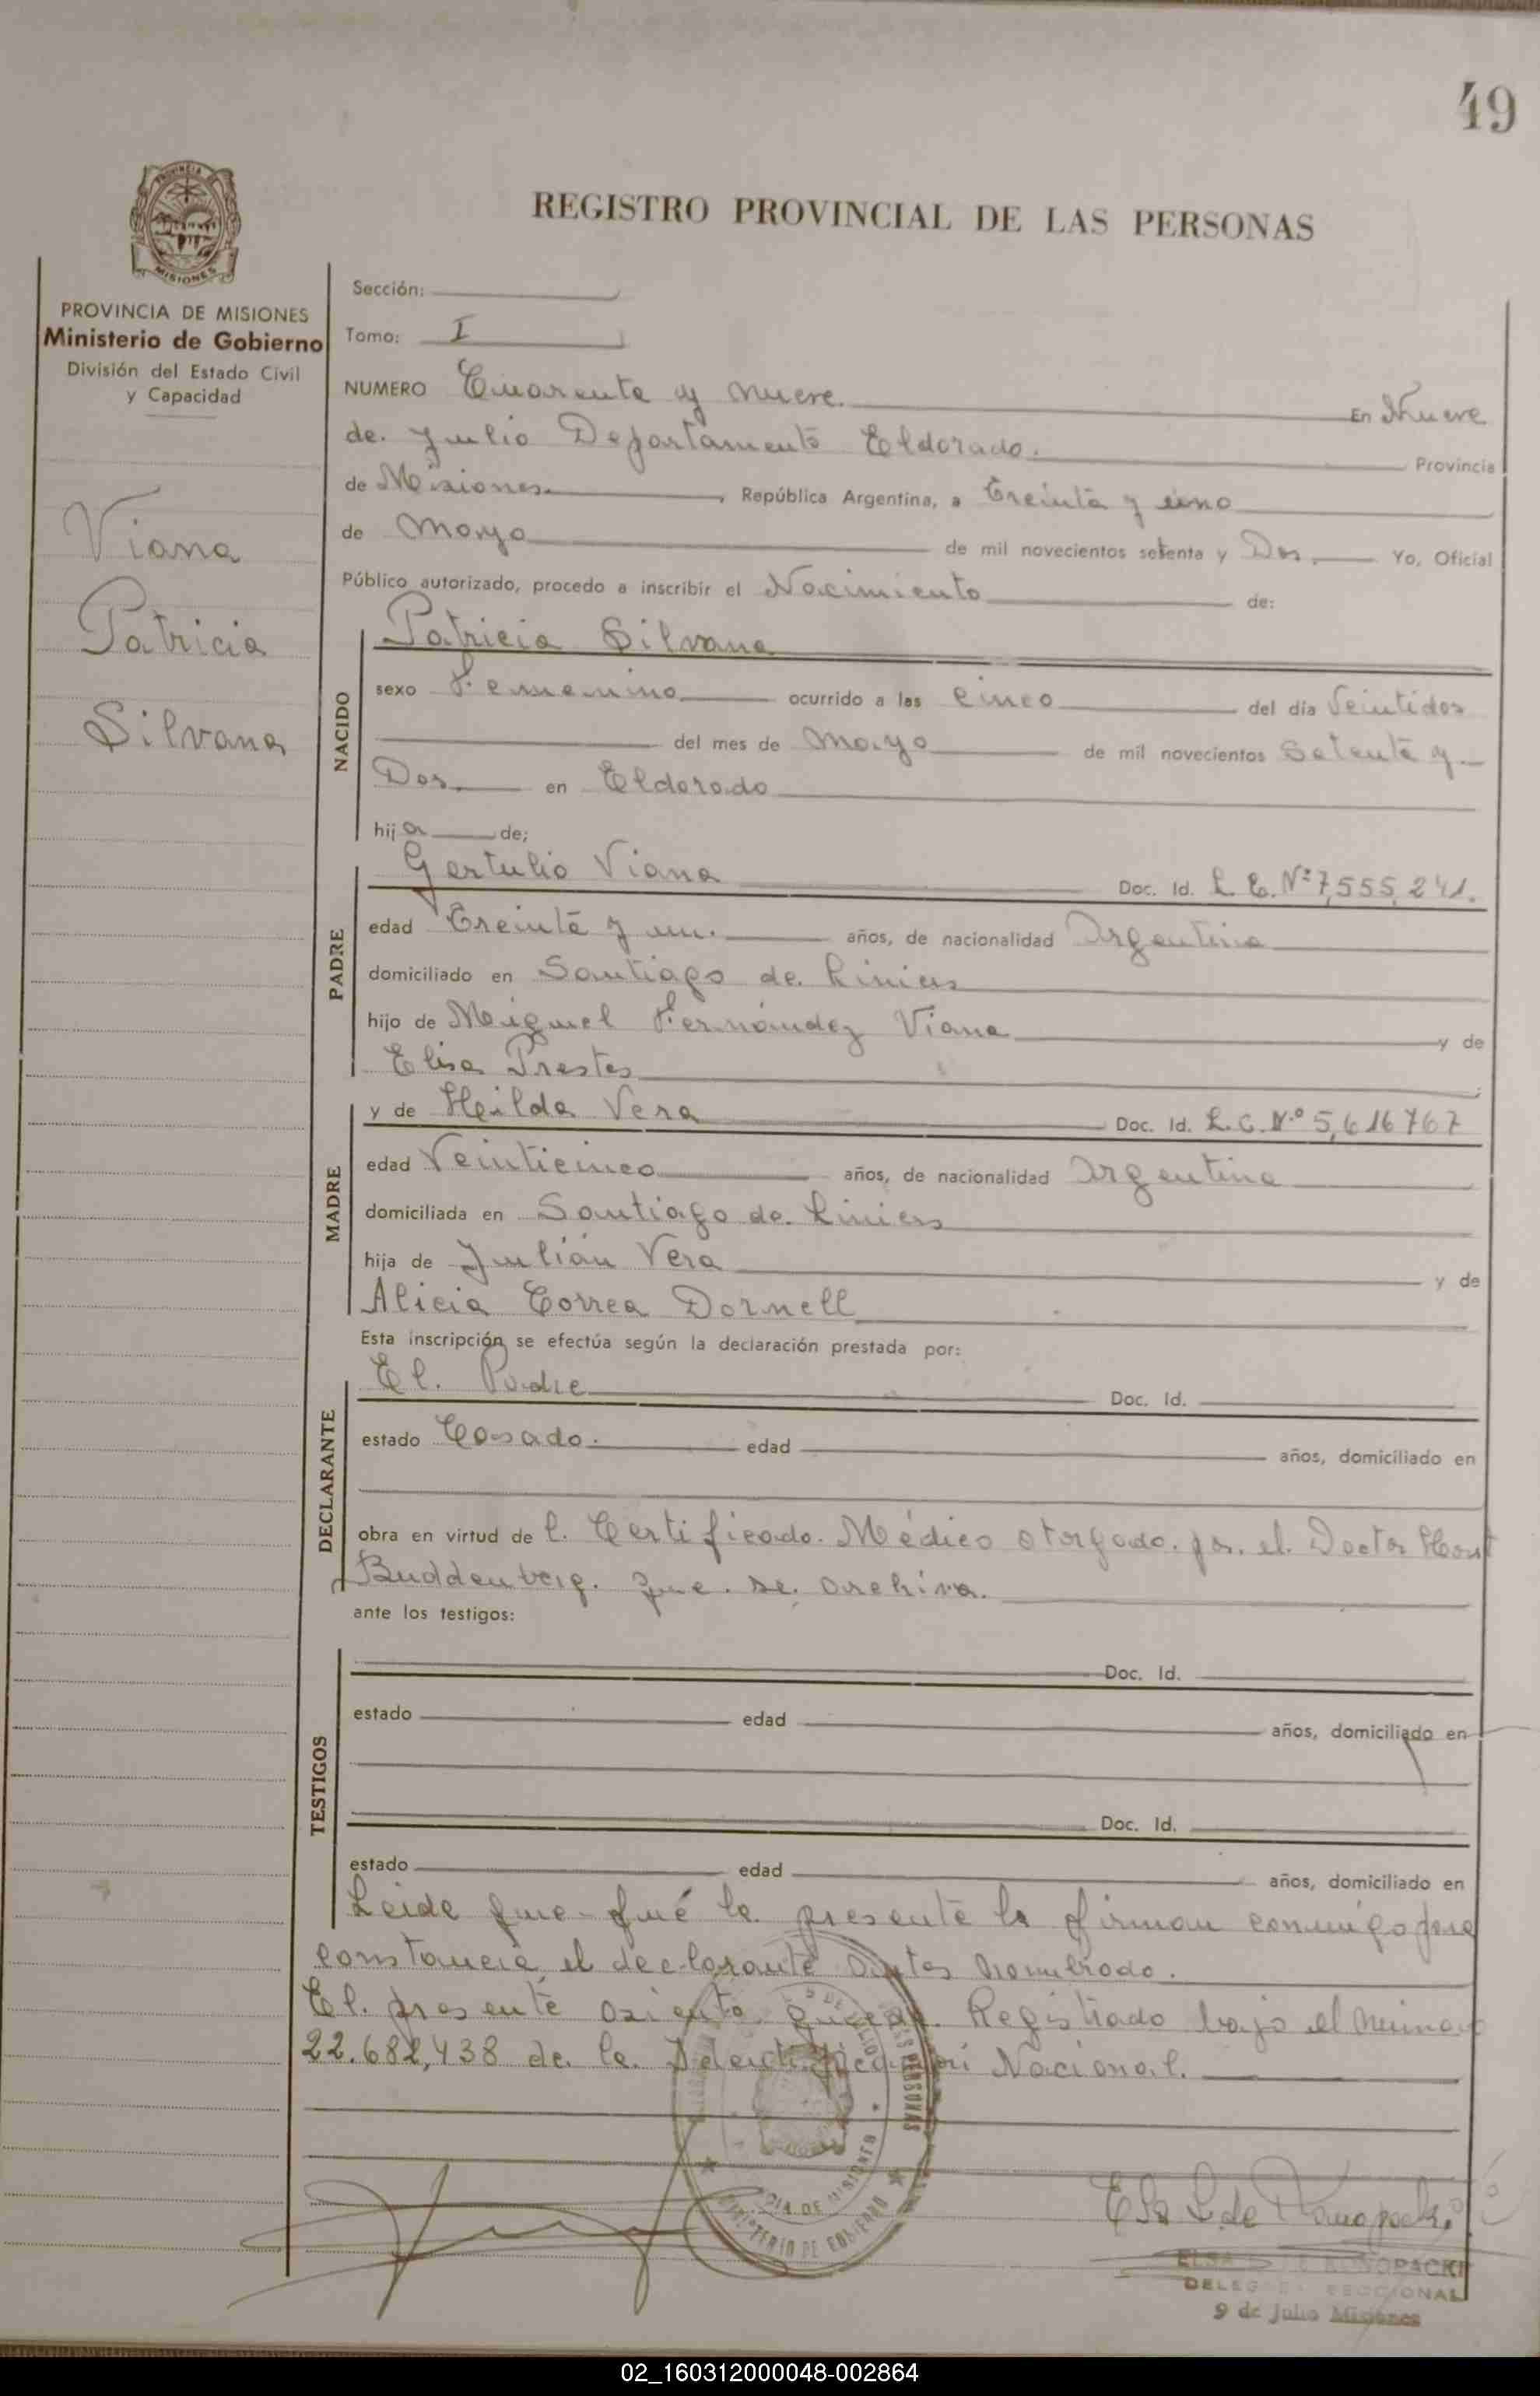 49
REGISTRO PROVINCIAL DE LAS PERSONAS
MISIONES
PROVINCIA DE MISIONES
Ministerio de Gobierno
División del Estado Civil
y Capacidad
Viana
Patricia
Silvana
Sección:
Tomo: I
NUMERO Cuarenta y nueve. En Nueve
de Julio Departamento Eldorado. Provincia
de Misiones, República Argentina, a treinta y uno
de Mayo de mil novecientos setenta y Dos. Yo, Oficial
Público autorizado, procedo a inscribir el Nacimiento de:
NACIDO
Patricia Silvana
sexo Femenino ocurrido a las cinco del día Veintidos
del mes de Mayo de mil novecientos Setenta y
Dos. en Eldorado
hija de;
PADRE
Gertulio Viana Doc. Id. L. E. Nº 7,555,241.
edad Treinta y un. años, de nacionalidad Argentina
domiciliado en Santiago de Liniers
hijo de Miguel Fernández Viana y de
Elisa Prestes
MADRE
y de Hilda Vera Doc. Id. L.C. Nº 5,616767
edad Veinticinco años, de nacionalidad Argentina
domiciliada en Santiago de Liniers
hija de Julián Vera y de
Alicia Correa Dornell
Esta inscripción se efectúa según la declaración prestada por:
DECLARANTE
El. Padre Doc. Id.
estado Casado. edad años, domiciliado en
obra en virtud del Certificado Médico otorgado por el Doctor Horst
Buddenberg. que se archiva.
ante los testigos:
TESTIGOS
Doc. Id.
estado edad años, domiciliado en
Doc. Id.
estado edad años, domiciliado en
Leida que fué la presente la firman conmigo para
constancia el declarante antes nombrado.
El presente asiento queda Registrado bajo el número
22.682,438 de la Identificación Nacional.
9 DE JULIO
PERSONAS
MINISTERIO DE GOBIERNO
Elsa L. de Konopacki
ELSA DE KONOPACKI
DELEG SECCIONAL
9 de Julio Misiones
02_160312000048-002864